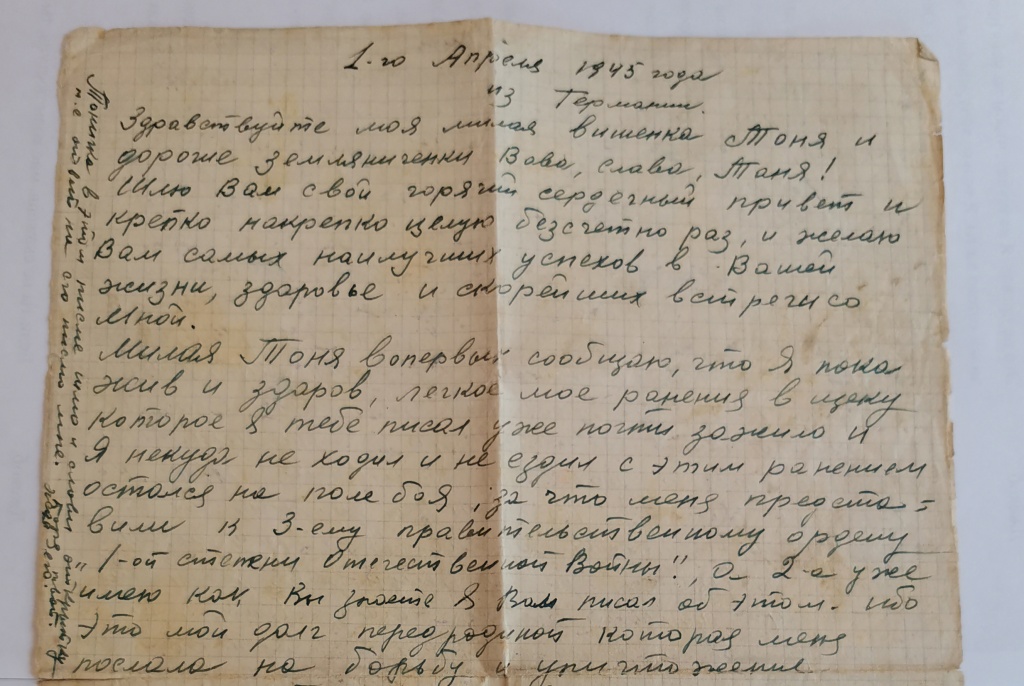 1-го Апреля 1945 года
из Германии.
Здравствуйте моя милая вишенка Тоня и
дороже земляниченки Вова, слава, Таня!
Шлю Вам свой горячий сердечный привет и
крепко накрепко целую безсчетно раз, и желаю
Вам самых наилучших успехов в Вашей
жизни, здоровье и скорейших встречи со
мной.
Милая Тоня вопервый сообщаю, что Я пока
жив и здаров, легкое мое ранения в щеку
которое Я тебе писал уже почти зажило и
Я некуда не ходил и не ездил с этим ранением
остался на поле боя, за что меня предста=
вили к 3-ему правительственному ордену
"1-ой степени Отечественной Войны", а 2-а уже
имею как Вы знаете Я Вам писал об этом. ибо
это мой долг передродиной которая меня
послала на борьбу и уничтожения
Тонička в этом письме шлю и Славы открытку